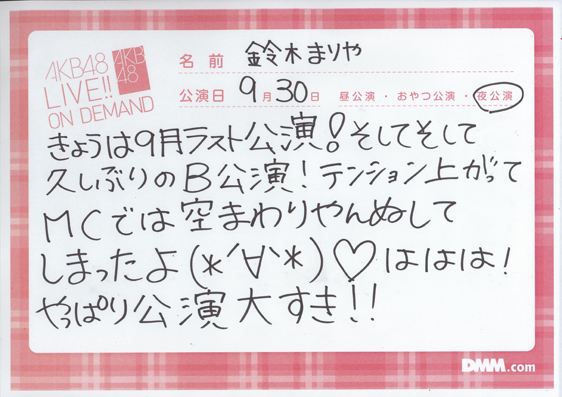 AKB48
LIVE!!
ON DEMAND
AKB
48
名前 鈴木まりや
公演日 9月30日 昼公演・おやつ公演・夜公演
きょうは9月ラスト公演!そしてそして
久しぶりのB公演!テンション上がって
MCでは空まわりやんぬして
しまったよ(*´∀`*)♡ははは!
やっぱり公演大すき!!
DMM.com